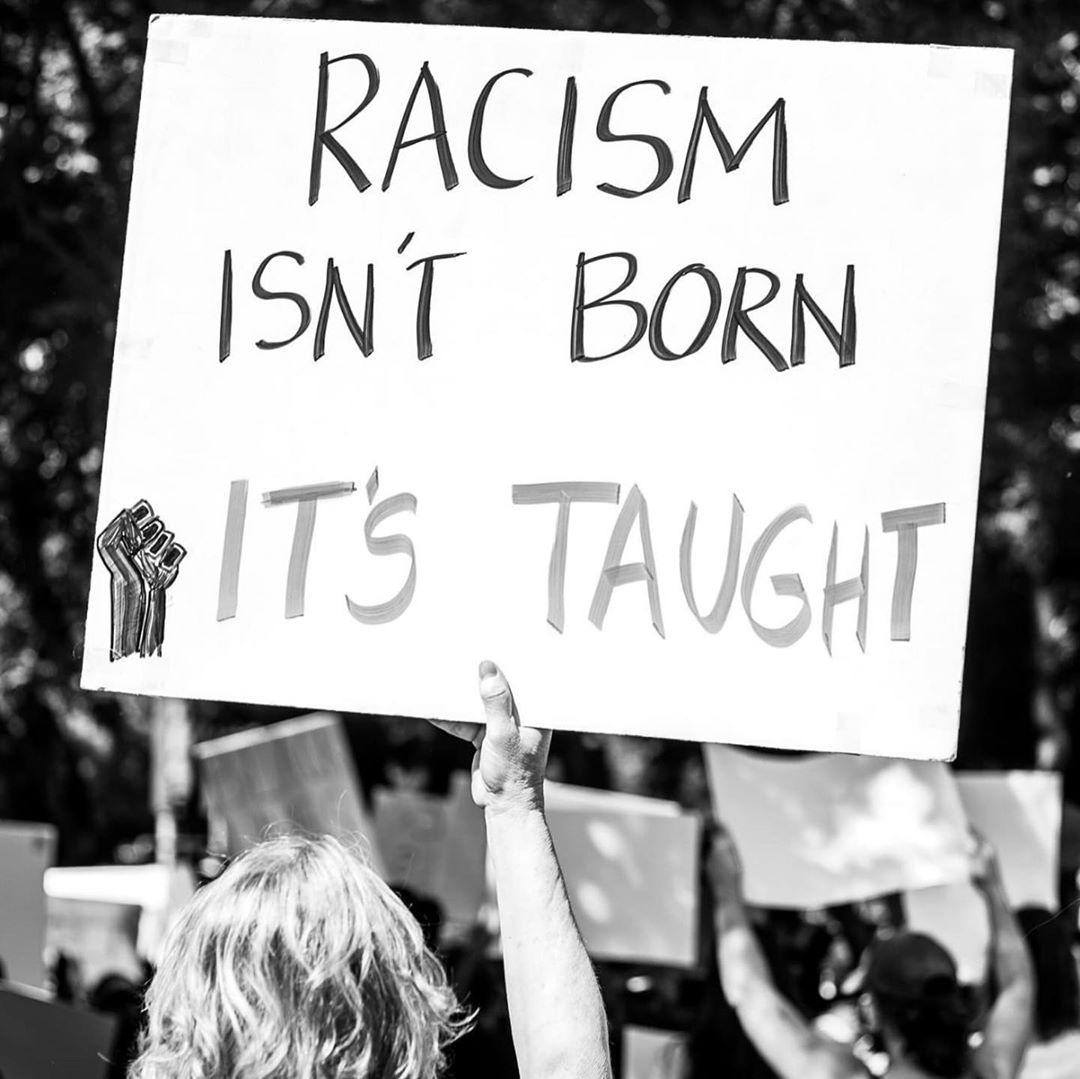 RACISM
ISN'T BORN
IT'S TAUGHT